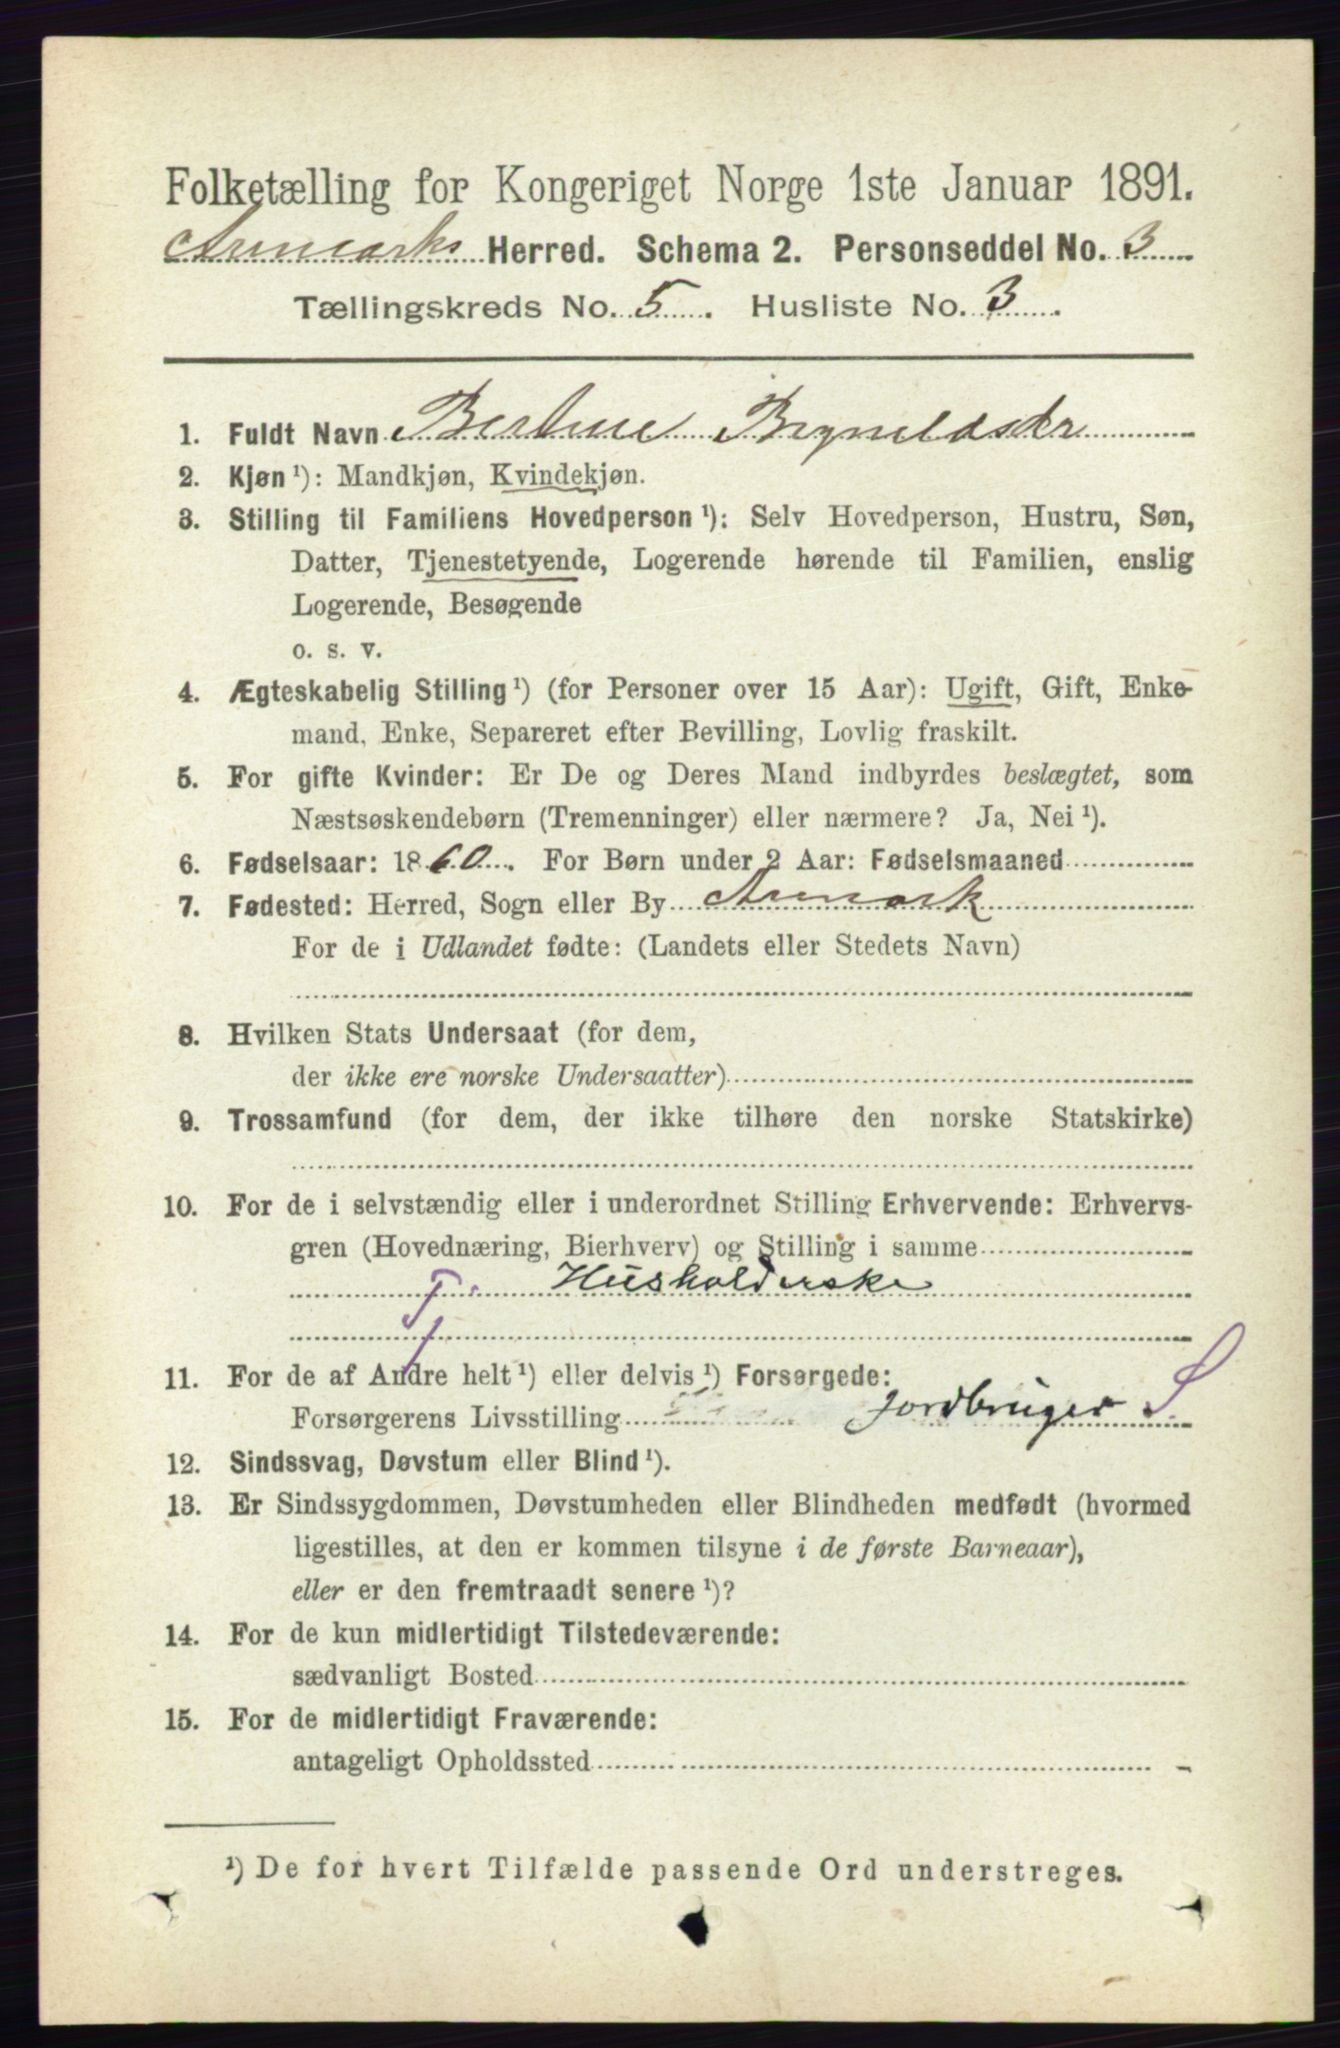 Folketælling for Kongeriget Norge 1ste Januar 1891.
Aremarks Herred. Schema 2. Personseddel No. 3
Tællingskreds No. 5. Husliste No. 3.
1. Fuldt Navn Bertine Brynildsdtr
2. Kjøn ¹): Mandkjøn, Kvindekjøn.
3. Stilling til Familiens Hovedperson ¹): Selv Hovedperson, Hustru, Søn,
Datter, Tjenestetyende, Logerende hørende til Familien, enslig
Logerende, Besøgende
o. s. v.
4. Ægteskabelig Stilling ¹) (for Personer over 15 Aar): Ugift, Gift, Enke-
mand, Enke, Separeret efter Bevilling, Lovlig fraskilt.
5. For gifte Kvinder: Er De og Deres Mand indbyrdes beslægtet, som
Næstsøskendebørn (Tremenninger) eller nærmere? Ja, Nei ¹).
6. Fødselsaar: 1860. For Børn under 2 Aar: Fødselsmaaned
7. Fødested: Herred, Sogn eller By Aremark
For de i Udlandet fødte: (Landets eller Stedets Navn)
8. Hvilken Stats Undersaat (for dem,
der ikke ere norske Undersaatter)
9. Trossamfund (for dem, der ikke tilhøre den norske Statskirke)
10. For de i selvstændig eller i underordnet Stilling Erhvervende: Erhvervs-
gren (Hovednæring, Bierhverv) og Stilling i samme
Tj. Husholderske
11. For de af Andre helt ¹) eller delvis ¹) Forsørgede:
Forsørgerens Livsstilling Jordbruger S.
12. Sindssvag, Døvstum eller Blind ¹).
13. Er Sindssygdommen, Døvstumheden eller Blindheden medfødt (hvormed
ligestilles, at den er kommen tilsyne i de første Barneaar),
eller er den fremtraadt senere ¹)?
14. For de kun midlertidigt Tilstedeværende:
sædvanligt Bosted
15. For de midlertidigt Fraværende:
antageligt Opholdssted
¹) De for hvert Tilfælde passende Ord understreges.